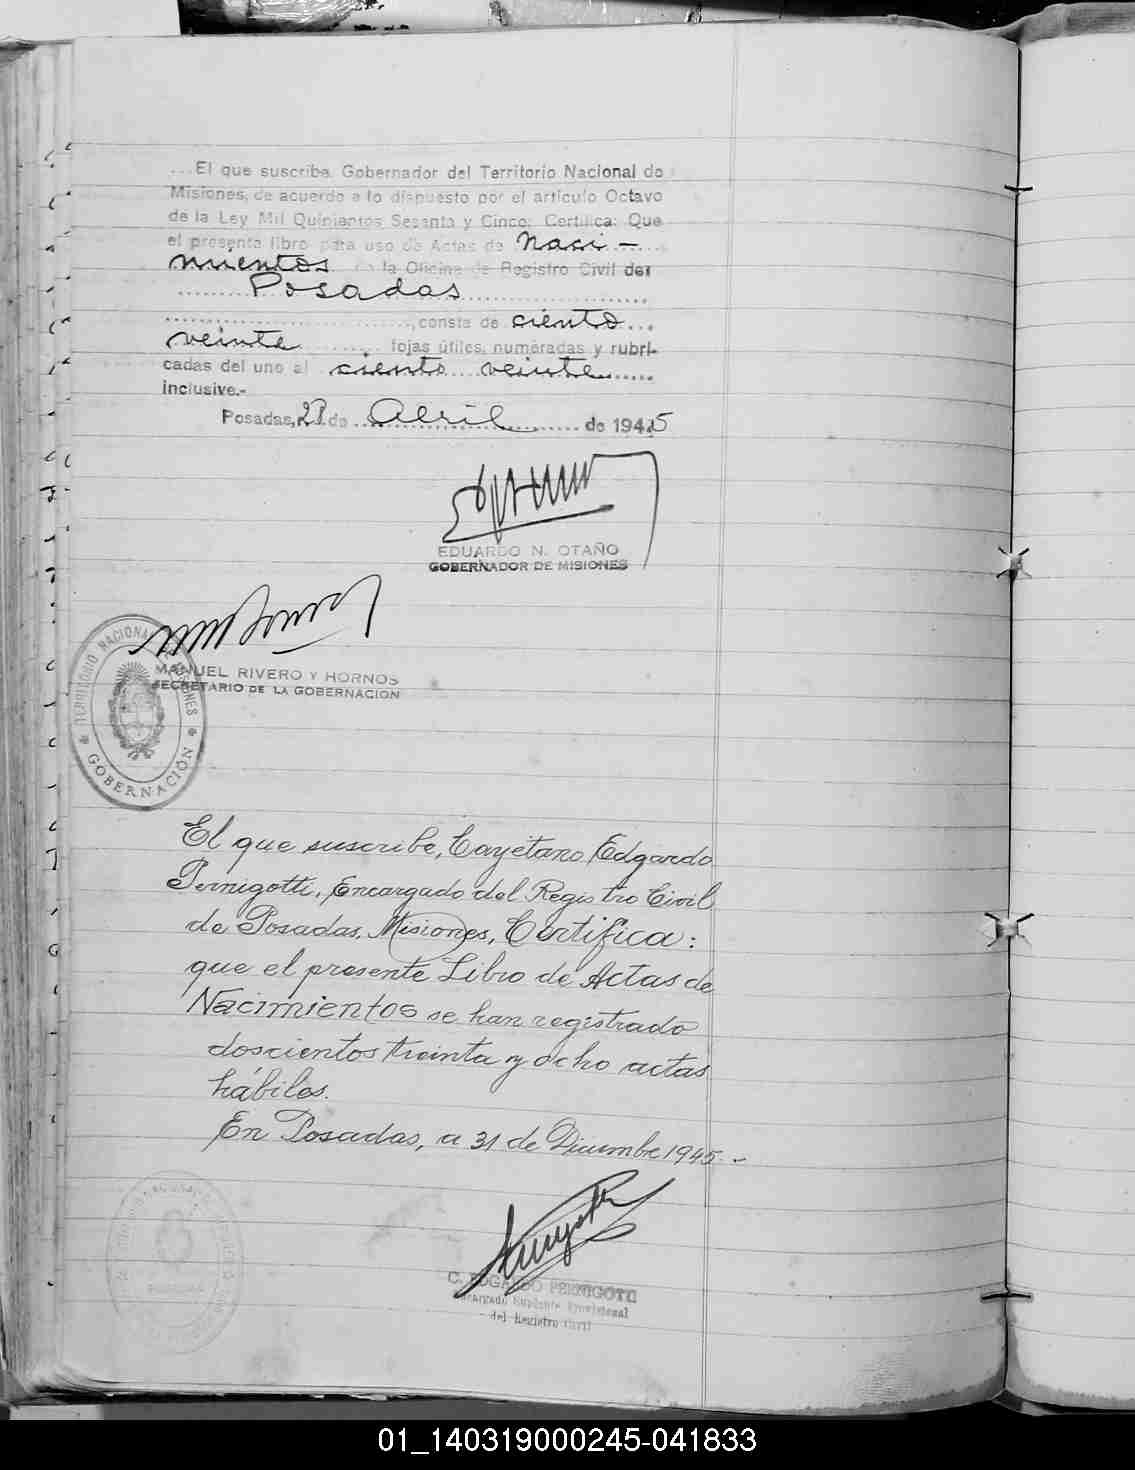 ...El que suscribe. Gobernador del Territorio Nacional de
Misiones, de acuerdo a lo dispuesto por el artículo Octavo
de la Ley Mil Quinientos Sesenta y Cinco; Certifica: Que
el presente libro para uso de Actas de Naci-
mientos de la Oficina de Registro Civil de
Posadas
, consta de ciento
veinte fojas útiles, numeradas y rubri-
cadas del uno al ciento veinte
inclusive.-
Posadas, de Abril de 1945
EDUARDO N. OTAÑO
GOBERNADOR DE MISIONES
MANUEL RIVERO Y HORNOS
SECRETARIO DE LA GOBERNACION
TERRITORIO NACIONAL DE MISIONES
GOBERNACIÓN
El que suscribe, Cayetano Edgardo
Pernigotti, Encargado del Registro Civil
de Posadas, Misiones, Certifica:
que el presente Libro de Actas de
Nacimientos se han registrado
doscientos treinta y ocho actas
hábiles.
En Posadas, a 31 de Diciembre 1945.-
C. EDGARDO PERNIGOTTI
Encargado Suplente Provisional
del Registro Civil
01_140319000245-041833